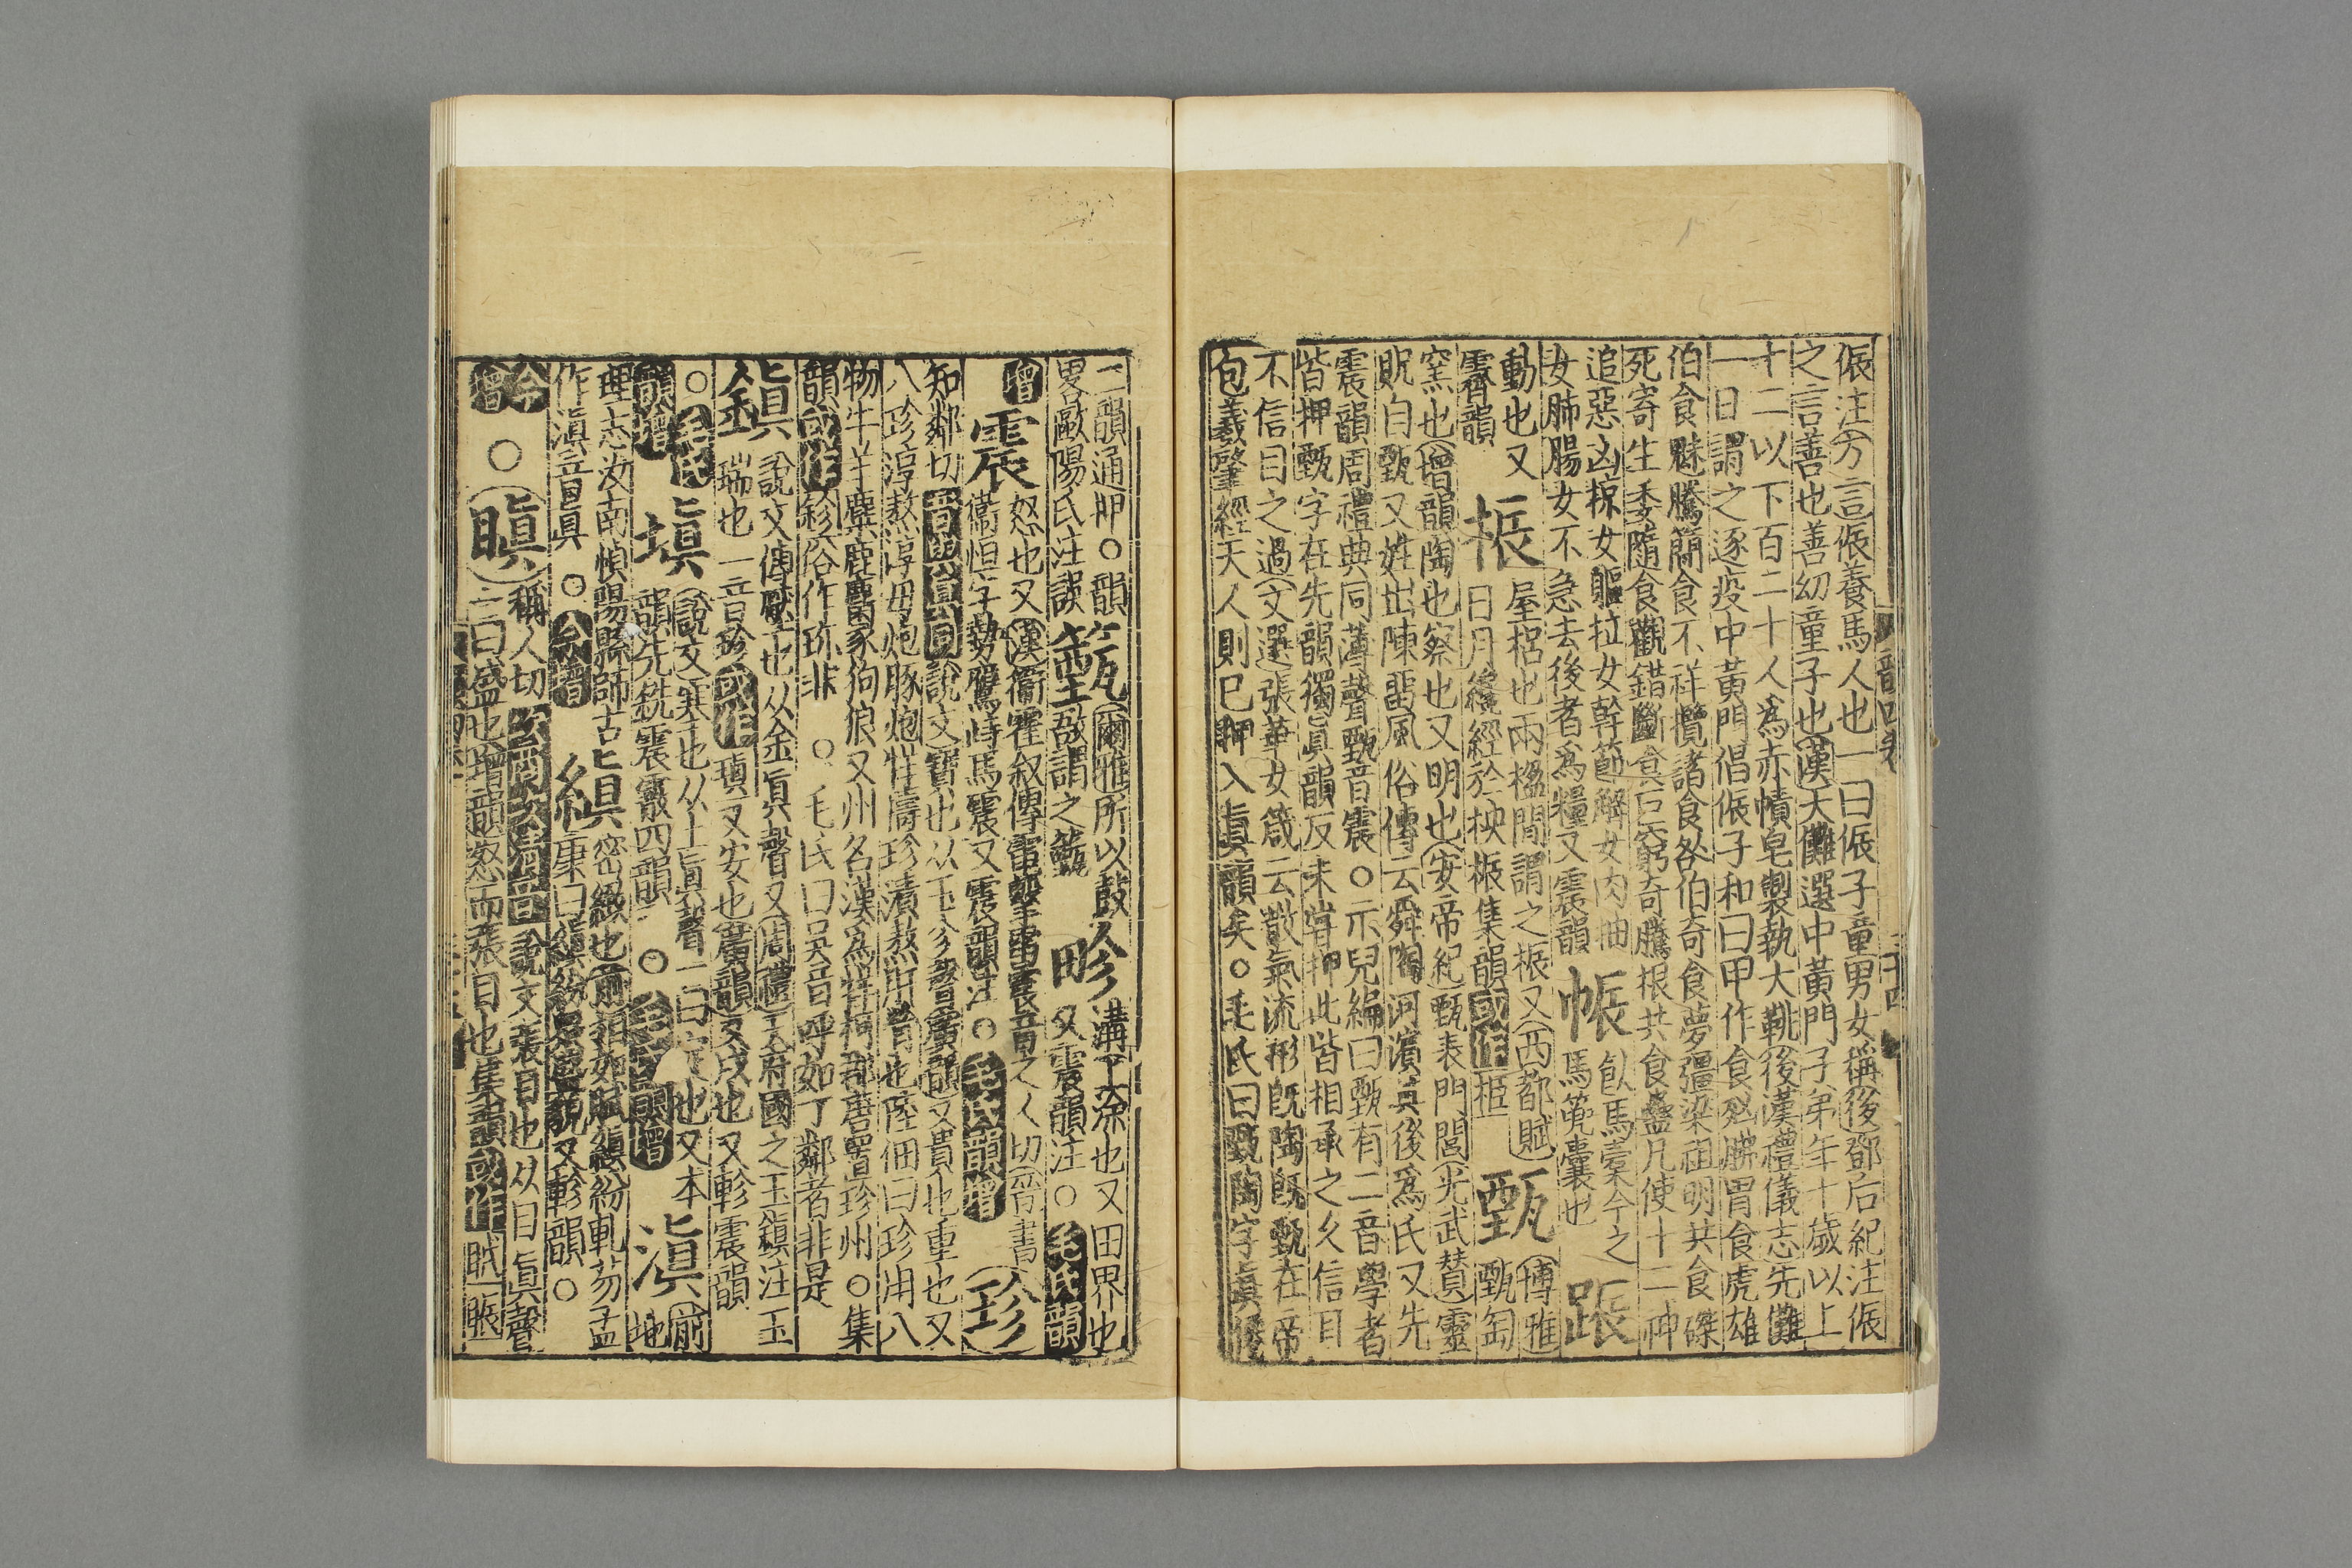 侲注方言侲養馬人也一曰侲子童男女稱後鄧后紀注侲
之言善也善幼童子也漢大儺選中黃門子弟年十歲以上
十二以下百二十人爲赤幘皂製執大鞉後漢禮儀志先儺
一日謂之逐疫中黃門倡侲子和曰甲作食𣧑胇胃食虎雄
伯食魅騰簡食不祥攬諸食咎伯奇食夢彊梁祖明共食磔
死寄生委隨食觀錯斷食巨窮奇騰根共食蠱凡使十二神
追惡凶掠女軀拉女幹節解女肉抽
女肺腸女不急去後者爲糧又震韻
帪
飤馬橐今之
馬篼囊也
跈
動也又
霽韻
桭
屋梠也兩楹間謂之桭又西都賦
日月纔經於柍桭集韻或作
甄
博雅
甄匋
窯也增韻陶也察也又明也又安帝紀甄表門閭光武贊靈
貺自甄又姓出陳畱風俗傳云舜陶河濱其後爲氏又先
震韻周禮典同薄聲甄音震○示兒編曰甄有二音學者
皆押甄字在先韻獨眞韻反未嘗押此皆相承之久信耳
不信目之過文選張華女箴云散氣流形旣陶旣甄在帝
包羲肇經天人則已押入眞韻矣○毛氏曰甄陶字眞僊
二韻通押○韻
畧歐陽氏注誤
𥳄
爾雅所以鼓
敔謂之籈
畛
溝上涂也又田界也
又震韻注○毛氏韻
增
震
怒也又漢衞霍叙傳雷擊電震音之人切晉書
衞恒字勢鷹峙馬震又震韻注○毛氏韻增
珍
知鄰切音與眞同說文寶也从玉㐱聲廣韻又貴也重也又
八珍淳熬淳毋炮豚炮牂擣珍漬熬肝膋也陸佃曰珍用八
物牛羊麋鹿麕豕狗狼又州名漢爲牂柯郡唐置珍州○集
韻或作鉁俗作珎非○毛氏曰吳音呼如丁鄰者非是
鎭
說文傳厭也从金眞聲又周禮天府國之玉鎭注玉
瑞也一音珍或作瑱又安也廣韻又戍也又軫震韻
○毛氏
韻增
塡
說文塞也从土眞聲一曰定也又本
韻先銑震霰四韻○毛氏韻增
滇
前
地
理志汝南愼陽縣師古
作滇音眞○今增
縝
密緻也前相如賦縝紛軋芴孟
康曰縝紛眾盛貌又軫韻○
今
增
○
瞋
稱人切次商次淸音說文張目也从目眞聲
一曰盛也增韻怒而張目也集韻或作䀼賑